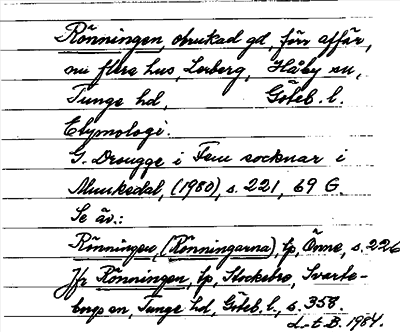 Rönningen, obrukad gd, förr affär,
nu flera hus, Lerberg, Håby sn,
Tunge hd, Göteb. l.
Etymologi.
G. Drougge i Fem socknar i
Munkedal, (1980), s. 221, 69 G.
Se äv.:
Rönningen, (Rönningarna), tp, Önne, s. 226
Jfr Rönningen, tp, Stockebro, Svarte-
borgs sn, Tunge hd, Göteb. l., s. 358.
L-t. B. 1984.